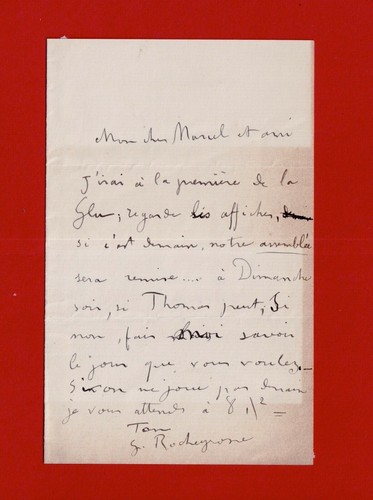 Mon cher Marcel et ami
J'irai à la première de la
Glu; regarde les affiches,
si c'est demain, notre assemblée
sera remise.... à Dimanche
soir, si Thomas peut; Si
non, fais moi savoir
le jour que vous voulez_
Si on ne joue pas demain
je vous attends à 8 1/2 =
Ton
G. Rochegrosse